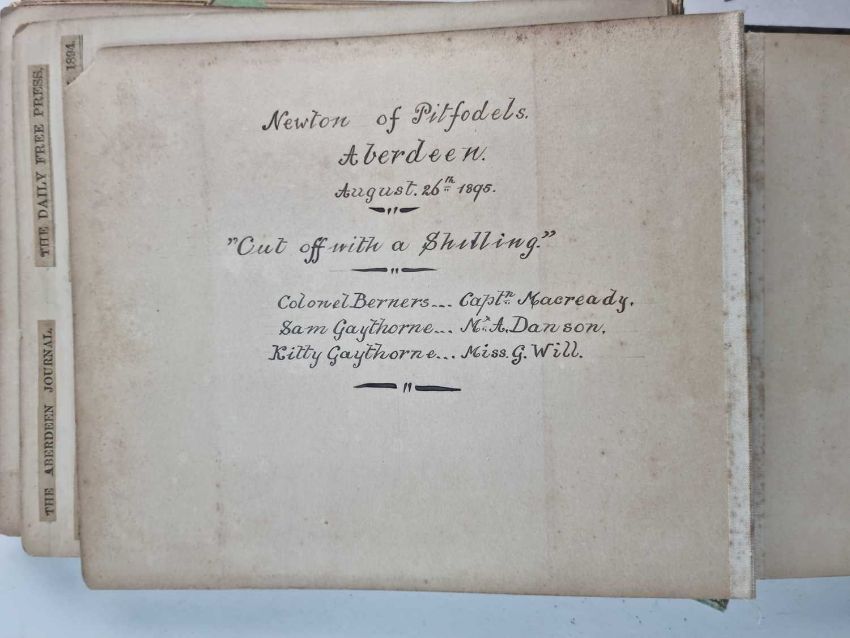 THE DAILY FREE PRESS,
1894.
THE ABERDEEN JOURNAL,
Newton of Pitfodels.
Aberdeen.
August. 26th 1895.
"Cut off with a Shilling."
Colonel Berners... Captn Macready.
Sam Gaythorne... Mr A. Danson.
Kitty Gaythorne... Miss. G. Will.